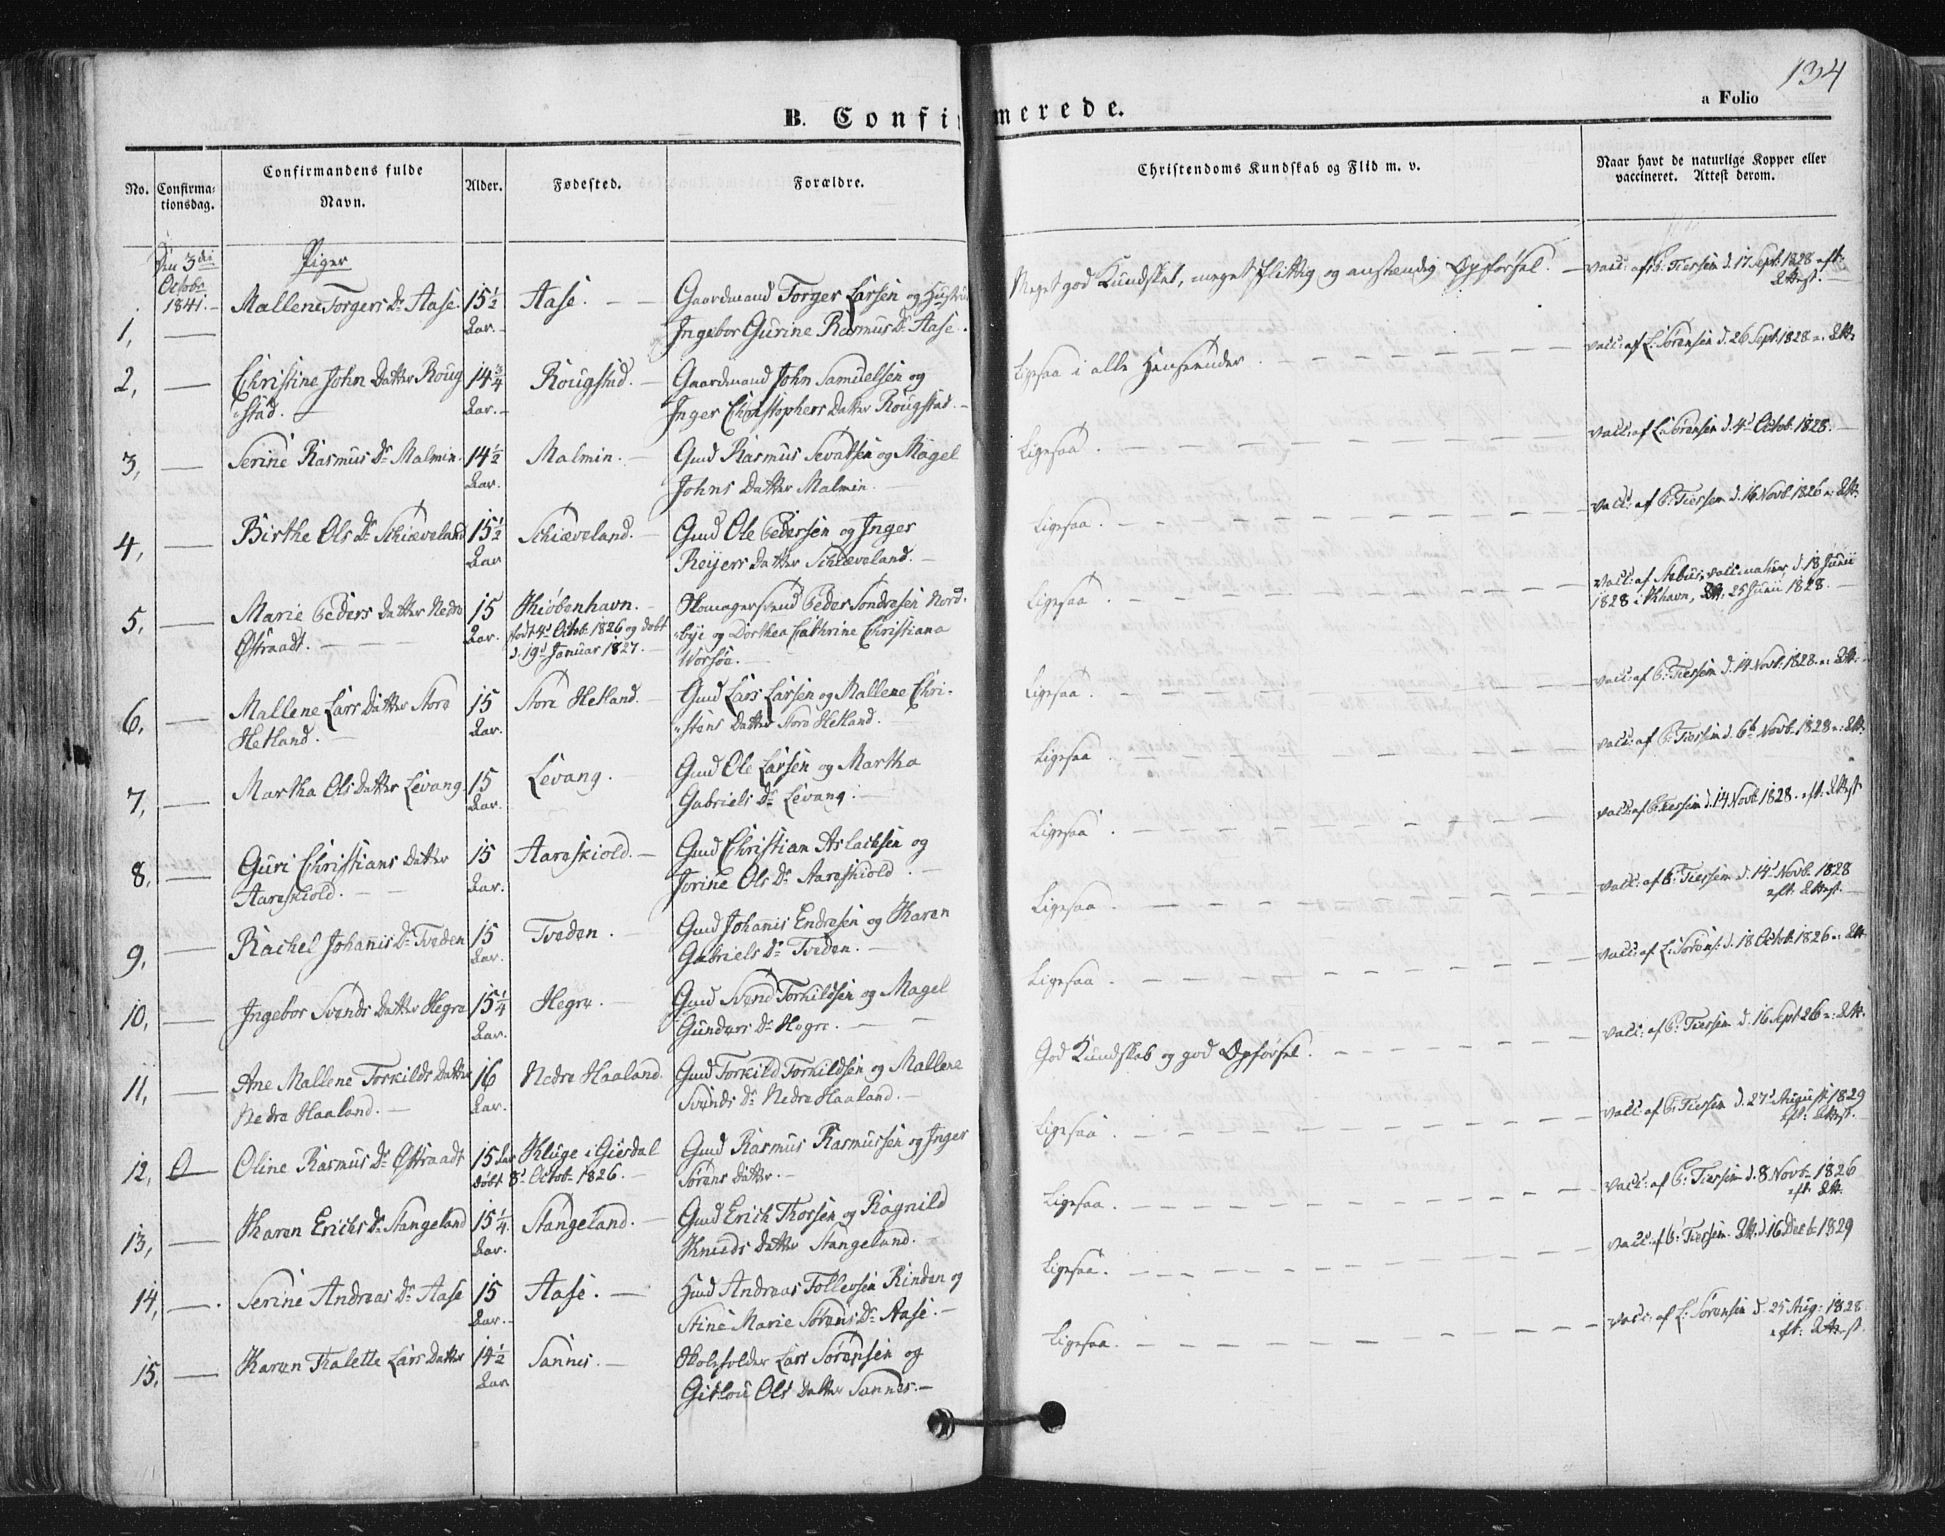 134
a Folio
B. Confirmerede.
No.
Confirma-
tionsdag.
Confirmandens fulde
Navn.
Alder.
Fødested.
Forældre.
Christendoms Kundskab og Flid m. v.
Naar havt de naturlige Kopper eller
vaccineret. Attest derom.
Den 3die
Octobr
1841.
Piger
1, Mallene Torgers Dr Aase 15½ Aar. Aase. Gaardmand Torger Larsen og Hustru
Ingebor Gurine Rasmus Dr Aase.
Meget god Kundskab, meget flittig og anstændig Opførsel. vacc: af P: Tiersen d. 17 Sept. 1828 eft.
Attest.
2, Christine John Datter Roug
stad. 14¾ Aar. Rougstad. Gaardmand John Samuelsen og
Inger Christophers Datter Rougstad.
Ligesaa i alle Henseender. vacc: af L: Sørensen d. 26 Sept. 1828 e: Att.
3, Serine Rasmus Dr Malmin. 14½ Aar. Malmin. Gmd Rasmus Sevatsen og Magel
Johns Datter Malmin.
Ligesaa. vacc: af L: Sørensen d. 4d Octob. 1828.
4, Birthe Ols Dr Schiæveland 15½ Aar Schiæveland. Gmd Ole Pedersen og Inger
Reijers Datter Schiæveland.
Ligesaa. vacc: af P: Tiersen d. 16 Novb. 1826 e: Att.
5, Marie Peders Datter Nedre
Østraadt. 15 Aar. Kiøbenhavn.
født 4d Octob. 1826 og døbt
d. 19d Januar 1827. Peder Sondresen Nord-
bye og Dorthea Cathrine Christiana
Worsøe.
Ligesaa. vacc: af d. 18 Junii
1828 i Khavn, Att. 25 Junii 1828.
6, Mallene Lars Datter Store
Hetland. 15 Aar. Store Hetland. Gmd Lars Larsen og Mallene Chri-
stens Datter Store Hetland.
Ligesaa. vacc: af P: Tiersen d. 14 Novb. 1828 e: Att.
7, Martha Ols Datter Levang 15 Aar. Levang. Gmd Ole Larsen og Martha
Gabriels Dr Levang.
Ligesaa. vacc: af P: Tiersen d. 6te Novb. 1828 e: Att.
8, Guri Christians Datter
Aareskiold. 15 Aar. Aareskiold. Gmd Christian Aslachsen og
Jorine Ols Dr Aareskiold.
Ligesaa. vacc: af P: Tiersen d. 14 Novb. 1828. eft. Attest
9, Rachel Johannis Dr Tveden 15 Aar. Tveden. Gmd Johannis Endresen og Karen
Gabriels Dr Tveden.
Ligesaa. vacc: af P: Tiersen d. 14d Novb. 1828
eft. Attest.
10, Ingebor Svends Datter Hegre 15¼ Aar. Hegre. Gmd Svend Torkildsen og Magel
Gunders Dr Hegre.
Ligesaa. vacc: af L: Sørens. d. 18 Octob. 1826 e: Att.
11, Ane Mallene Torkilds Datter
Nedre Haaland. 16 Aar. Nedre Haaland. Gmd Torkild Torkildsen og Mallene
Svends Dr Nedre Haaland.
God Kundskab og god Opførsel. vacc: af P: Tiersen d. 16 Sept 26 e: Att.
12, Oline Rasmus Dr Østraadt 15 Aar Kluge i Giesdal
døbt 8d Octob. 1826. Gmd Rasmus Rasmussen og Inger
Sørens Datter.
Ligesaa. vacc: af P: Tiersen d. 27d August 1829
eft. Attest.
13, Karen Erichs Dr Stangeland 15¼ Aar. Stangeland. Gmd Erich Thorsen og Ragnild
Knuds Datter Stangeland.
Ligesaa. vacc: af P: Tiersen d. 8 Novb. 1826
eft. Att.
14, Serine Andreas Dr Aase 15 Aar. Aase. Hmd Andreas Tollevsen Rinden og
Stine Marie Sørens Dr Aase.
Ligesaa. vacc: af P: Tiersen. Att. d. 16 Decb 1829
15, Karen Thalette Lars Datter 14½ Aar Sannes. Skoleholder Lars Sørensen og
Gitlou Ols Datter Sannes.
Ligesaa. vacc: af L: Sørensen d. 25 Aug. 1828
eft. Attest.